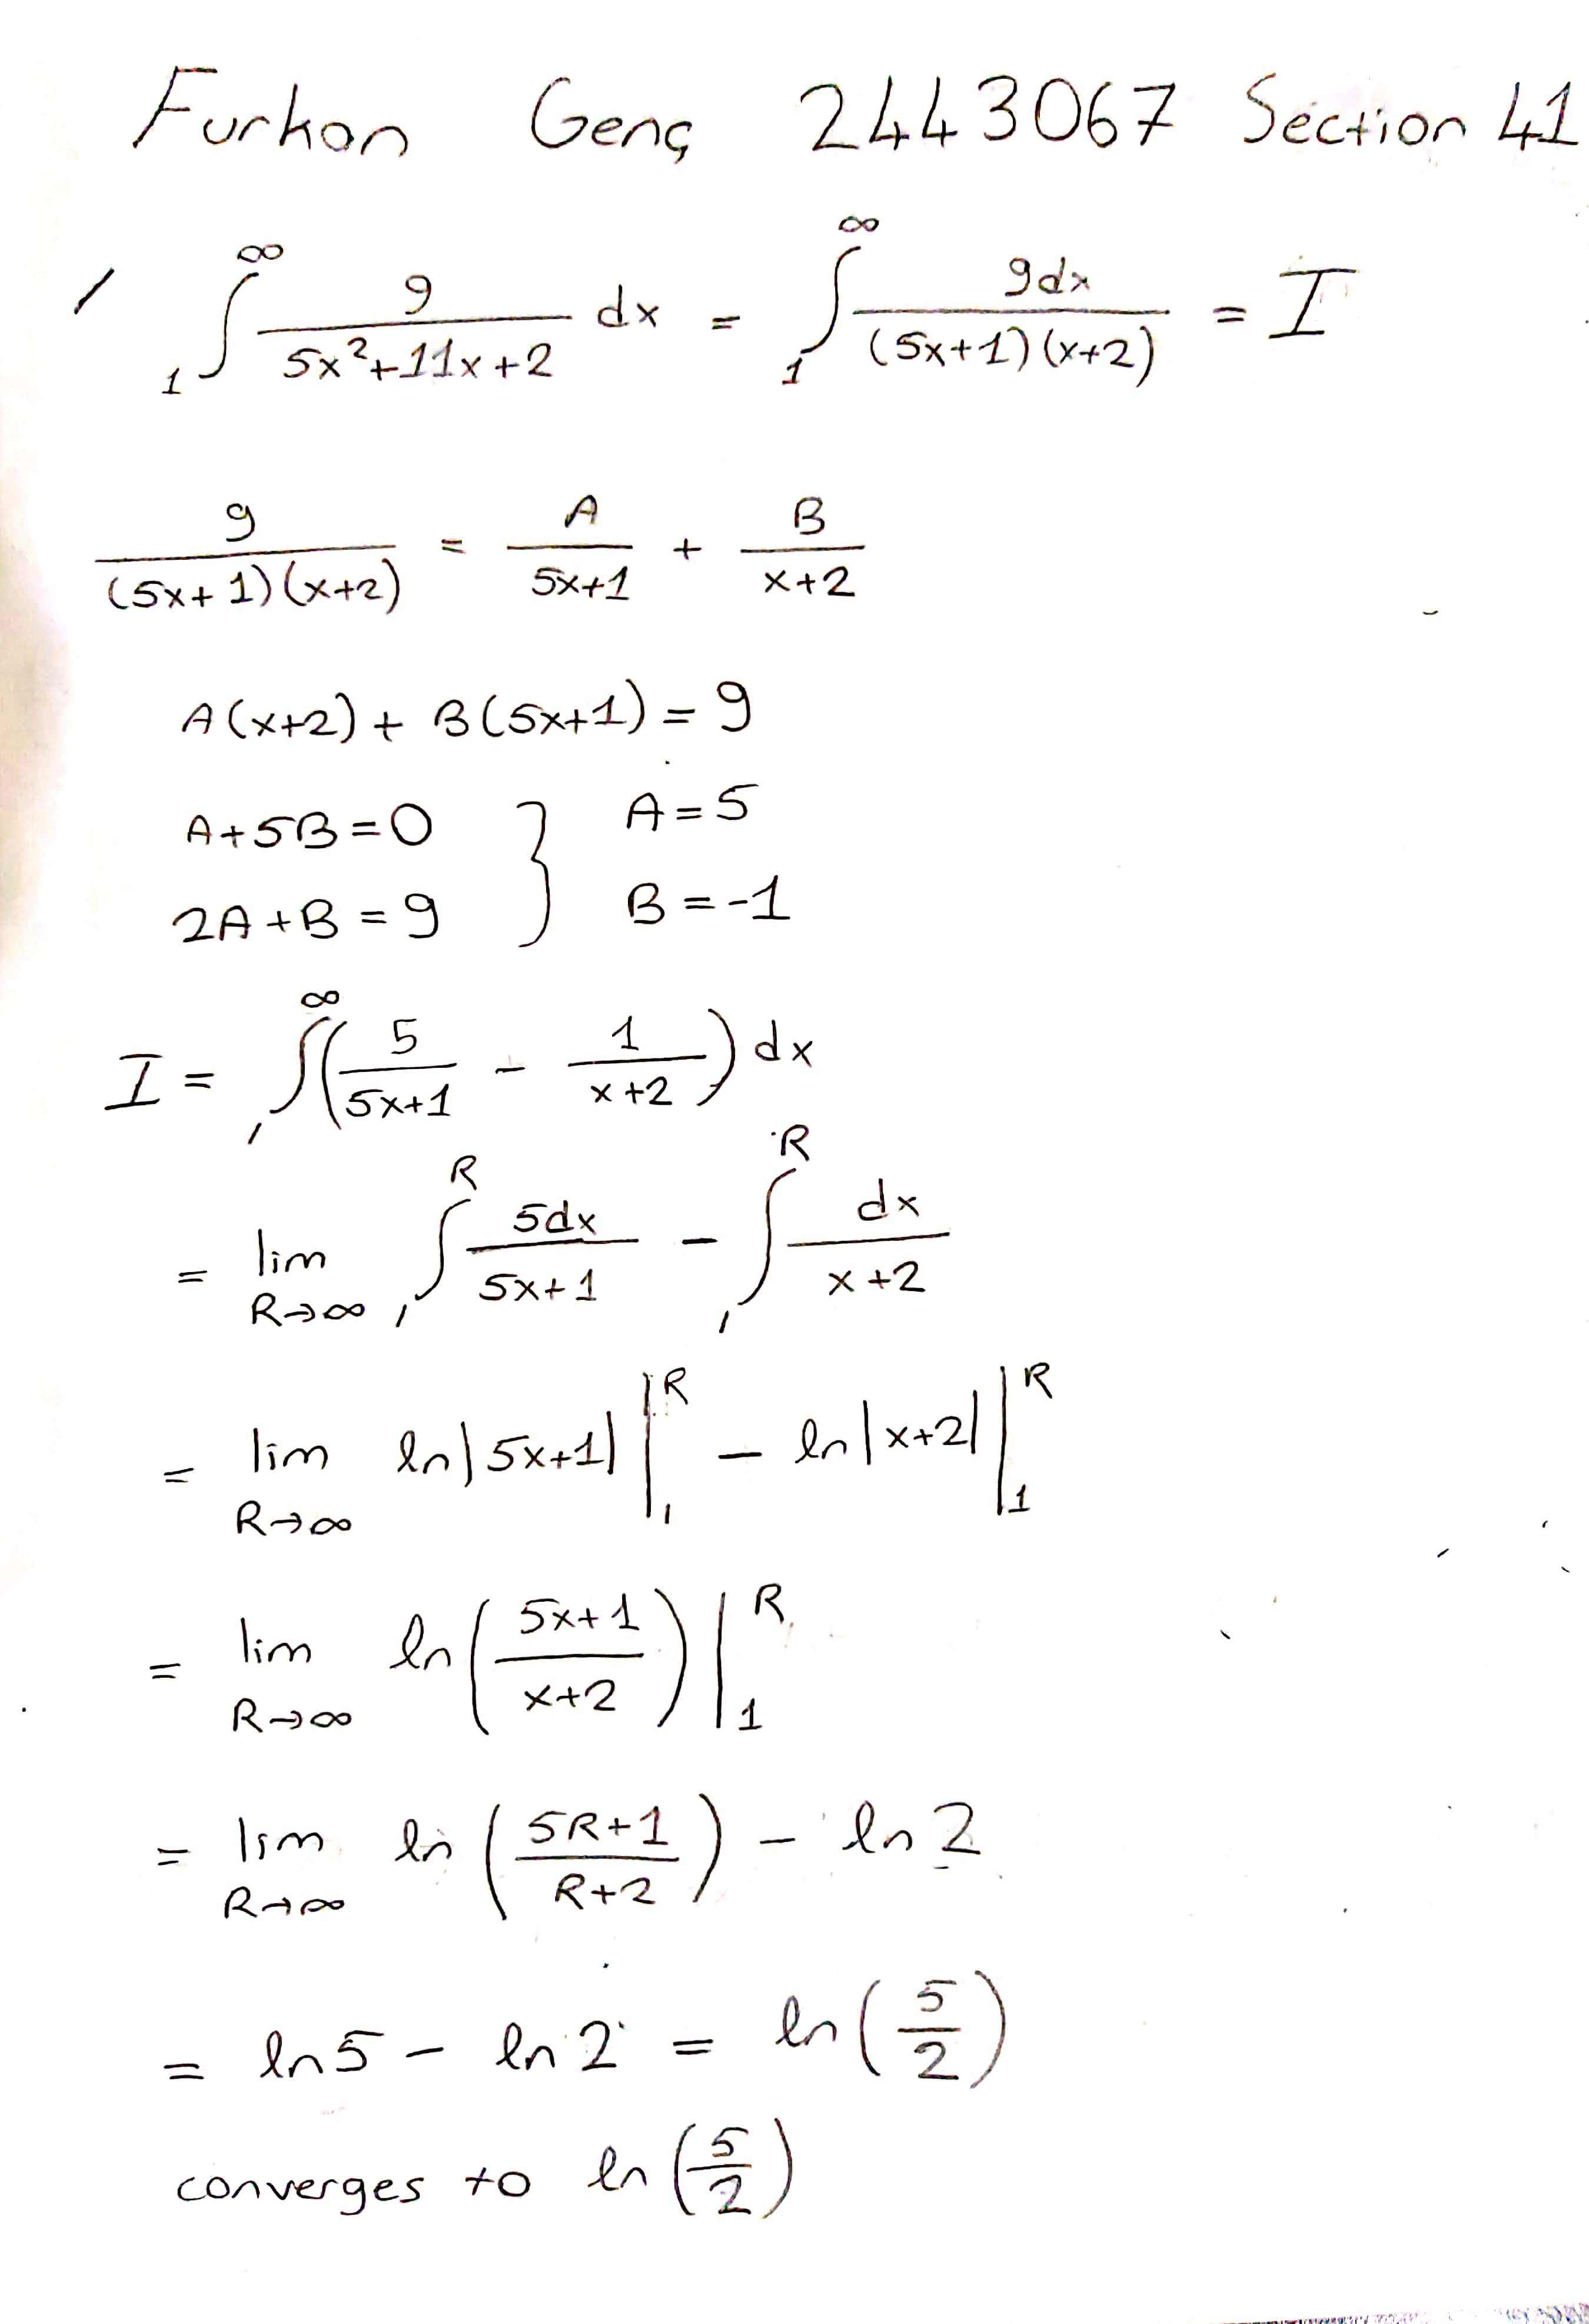 Furkan Genç 2443067 Section 41
∫₁^∞ 9/(5x²+11x+2) dx = ∫₁^∞ 9dx/((5x+1)(x+2)) = I
9/((5x+1)(x+2)) = A/(5x+1) + B/(x+2)
A(x+2) + B(5x+1) = 9
A+5B=0 } A=5
2A+B=9 } B=-1
I = ∫₁^∞ (5/(5x+1) - 1/(x+2)) dx
= lim R→∞ ∫₁^R 5dx/(5x+1) - ∫₁^R dx/(x+2)
= lim R→∞ ln|5x+1| |₁^R - ln|x+2| |₁^R
= lim R→∞ ln((5x+1)/(x+2)) |₁^R
= lim R→∞ ln((5R+1)/(R+2)) - ln2
= ln5 - ln2 = ln(5/2)
converges to ln(5/2)